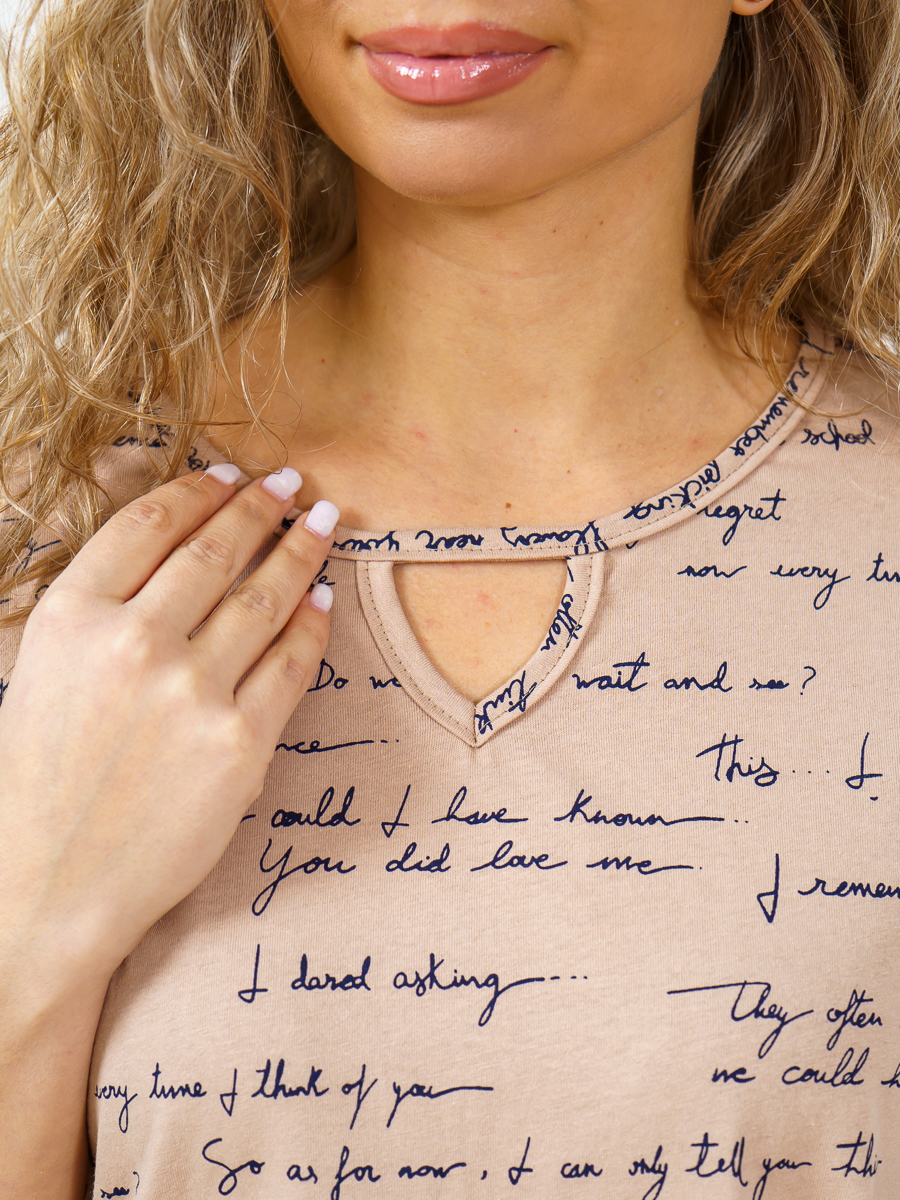 school
I remember picking
regret
flowers near your
now every
often
Do wait and see?
think
This... I
could I have known
You did love me
I remem
I dared asking....
They often
very time I think of you
we could h
So as for now, I can only tell you thi
see?